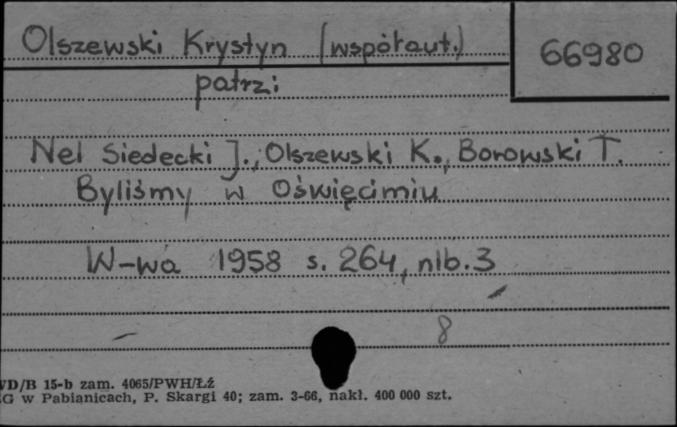 Olszewski Krystyn (współaut.)
66980
patrz:
Nel Siedecki J., Olszewski K., Borowski T.
Byliśmy w Oświęcimiu
W-wa 1958 s. 264, nlb. 3
8
VD/B 15-b zam. 4065/PWH/Łź
G w Pabianicach, P. Skargi 40; zam. 3-66, nakł. 400 000 szt.